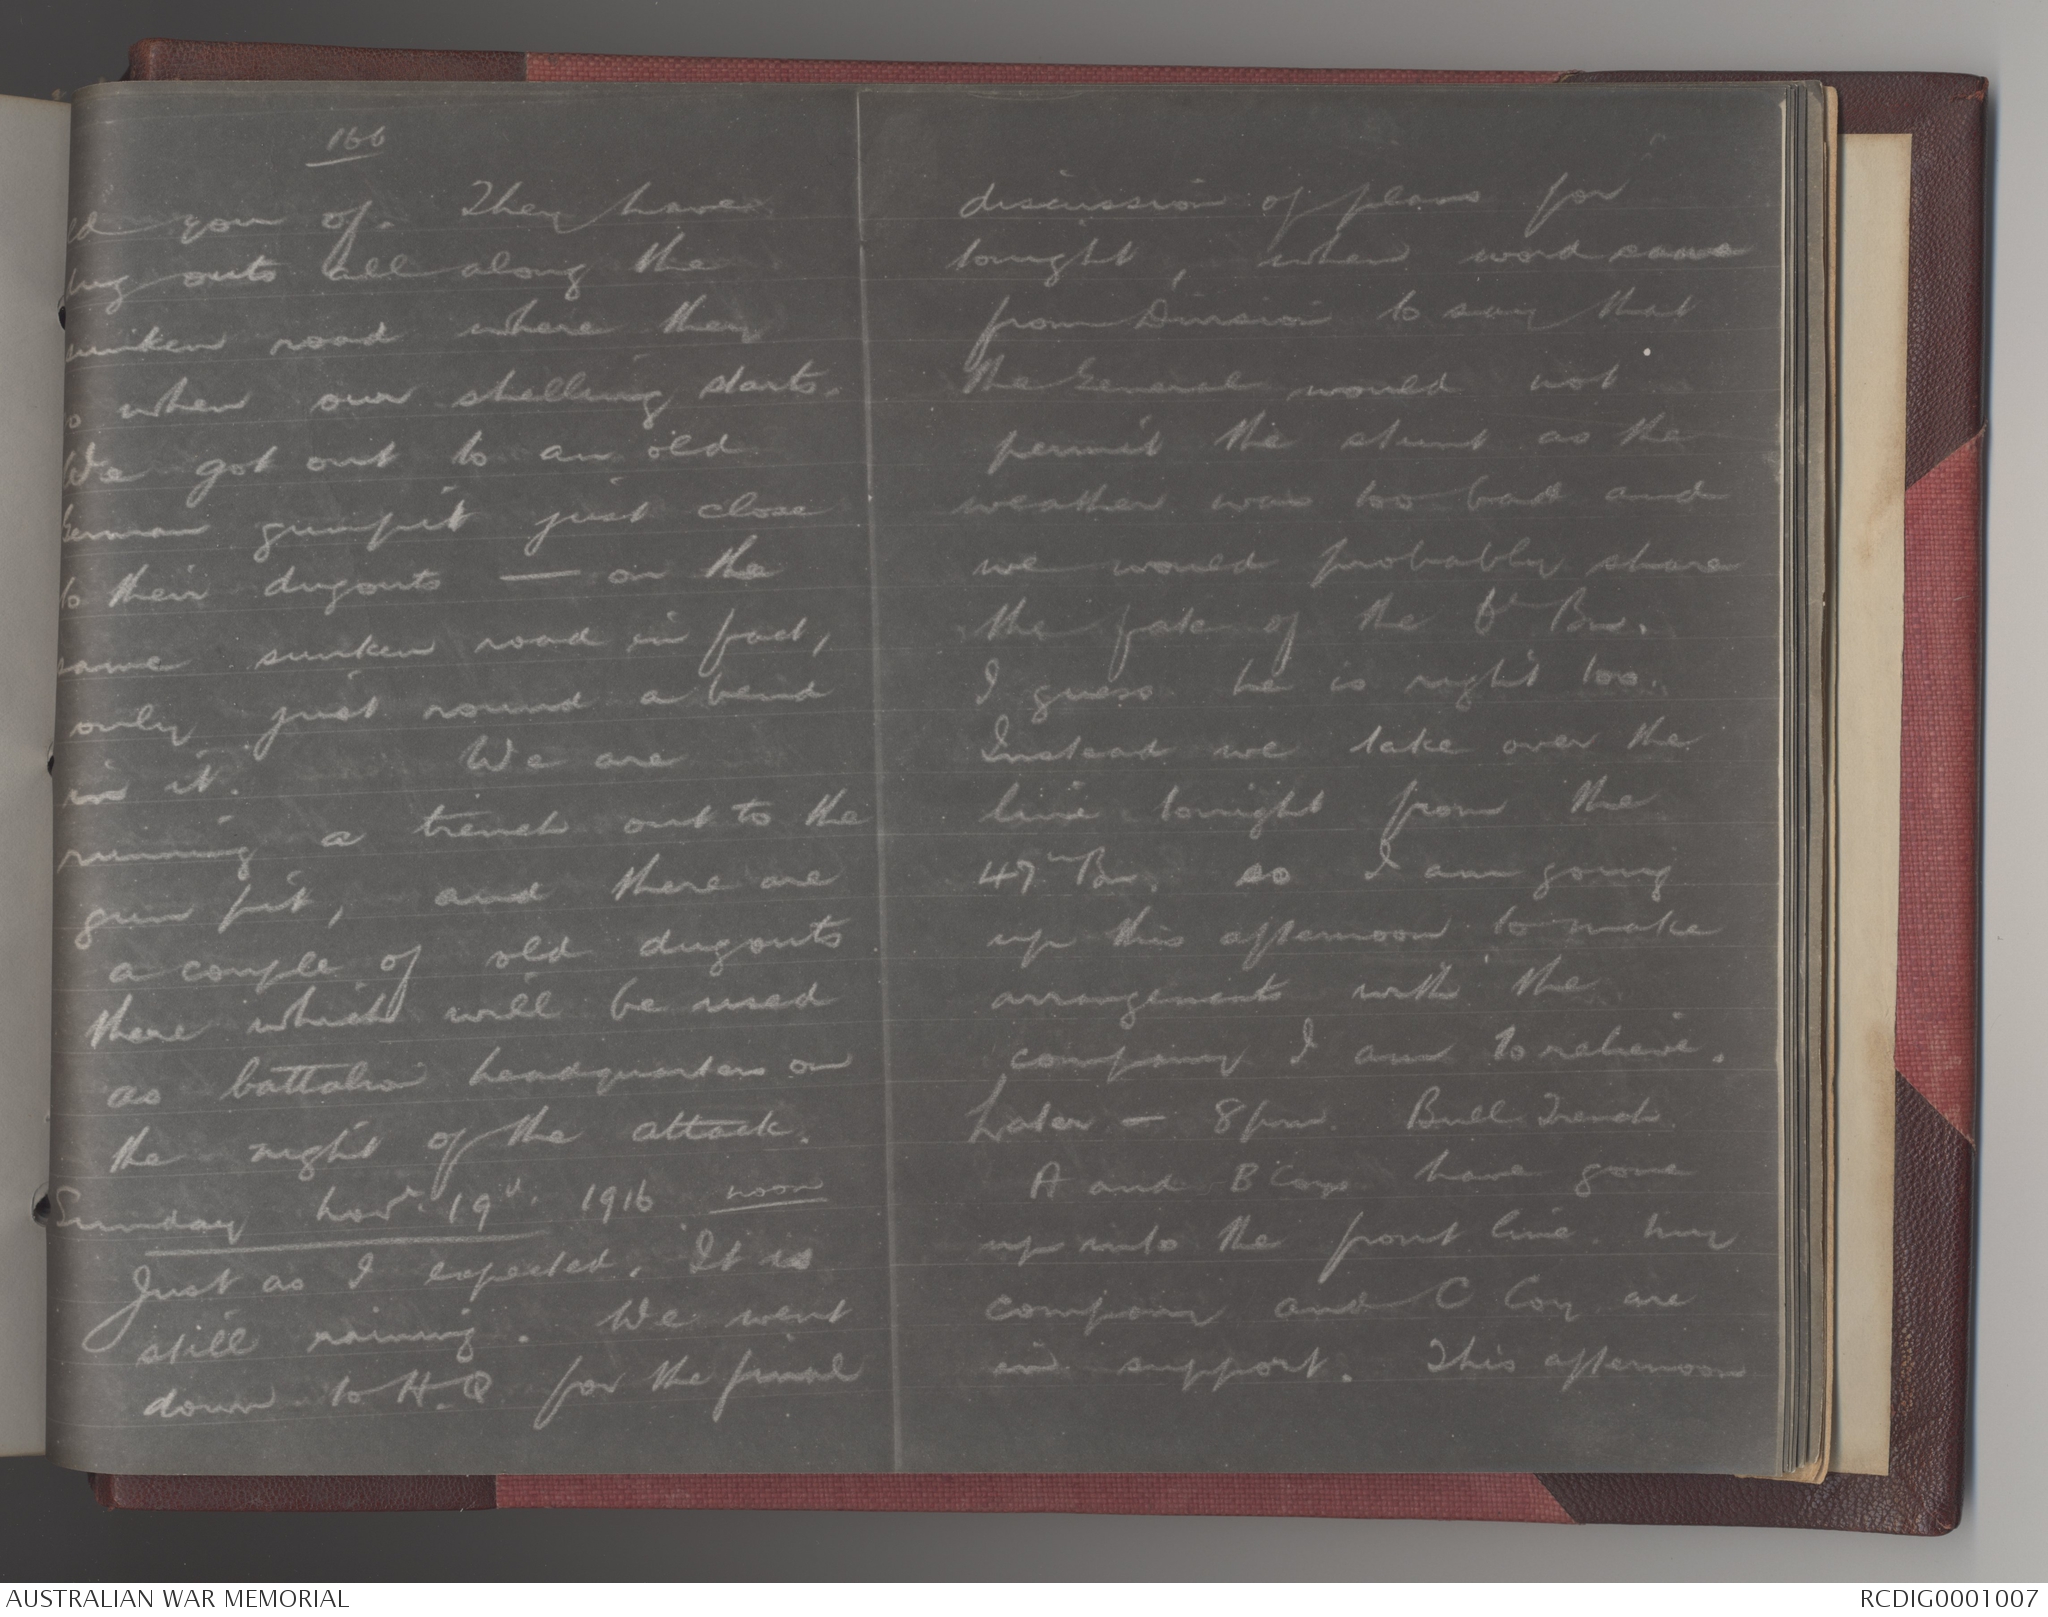 166
ld you of. They have
dug outs all along the
sunken road where they
go when our shelling starts.
We got out to an old
German gunpit just close
to their dugouts — on the
same sunken road in fact,
only just round a bend
in it. We are
running a trench out to the
gun pit, and there are
a couple of old dugouts
there which will be used
as battalion headquarters on
the night of the attack.
Sunday Novr. 19th. 1916 noon
Just as I expected. It is
still raining. We went
down to H.Q for the final
discussion of plans for
tonight, when word came
from Division to say that
the General would not
permit the stunt as the
weather was too bad and
we would probably share
the fate of the 6th Bn.
I guess he is right too.
Instead we take over the
line tonight from the
47th Bn. so I am going
up this afternoon to make
arrangements with the
company I am to relieve.
Later — 8pm. Bull Trench
A and B Coys have gone
up into the front line. My
company and C Coy are
in support. This afternoon
AUSTRALIAN WAR MEMORIAL
RCDIG0001007